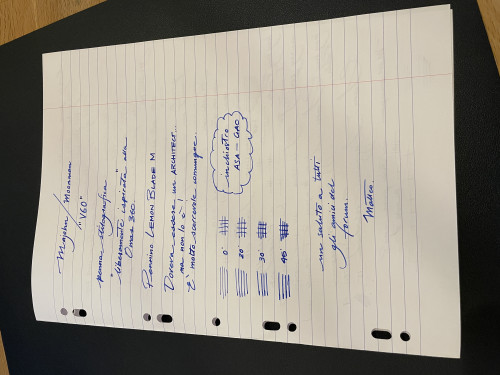 Majohn / Moonman
"V60"
penna stilografica
"liberamente ispirata alla"
Omas 360.
Pennino LEMON BLADE M
Doveva essere un ARCHITECT
ma non lo è!
È molto scorrevole comunque.
inchiostro
ASA-GAO
0°
20°
30°
45°
un saluto a tutti
gli amici del
forum.
Matteo.